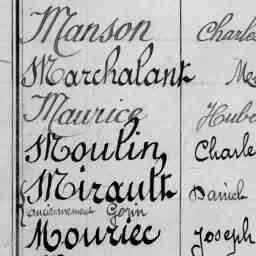 Manson Charles
Marchalant
Maurice Hube
Moulin, Charle
Mirault Daniel
(anciennement Gorin
Mouriec Joseph